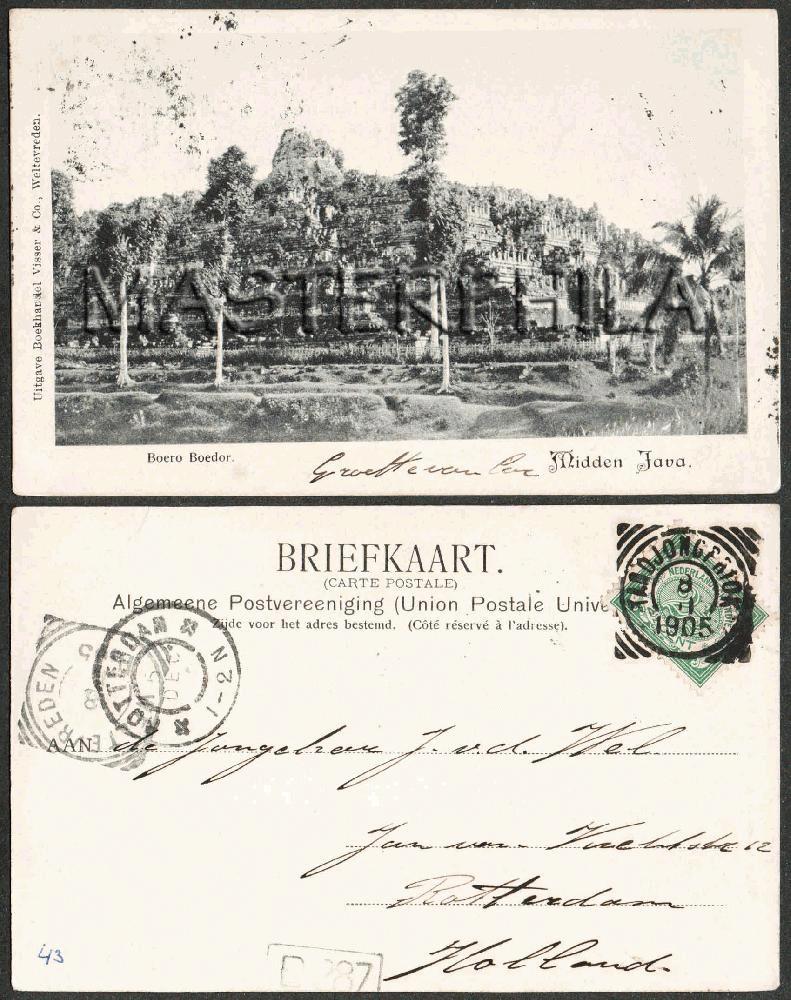 Uitgave Boekhandel Visser & Co., Weltevreden.
MASTERPHILA
Boero Boedor.
Groete van Cor
Midden Java.
BRIEFKAART.
(CARTE POSTALE)
Algemeene Postvereeniging (Union Postale Unive
Zijde voor het adres bestemd. (Côté réservé à l'adresse).
TANDJONGPRIOK
8
1
1905
NEDERLAND
CENT
ROTTERDAM
DEC
N 1-2
TEVREDEN
AAN de Jongeheer J. v.d. Wel
Jan van
Rotterdam
Holland.
43
87